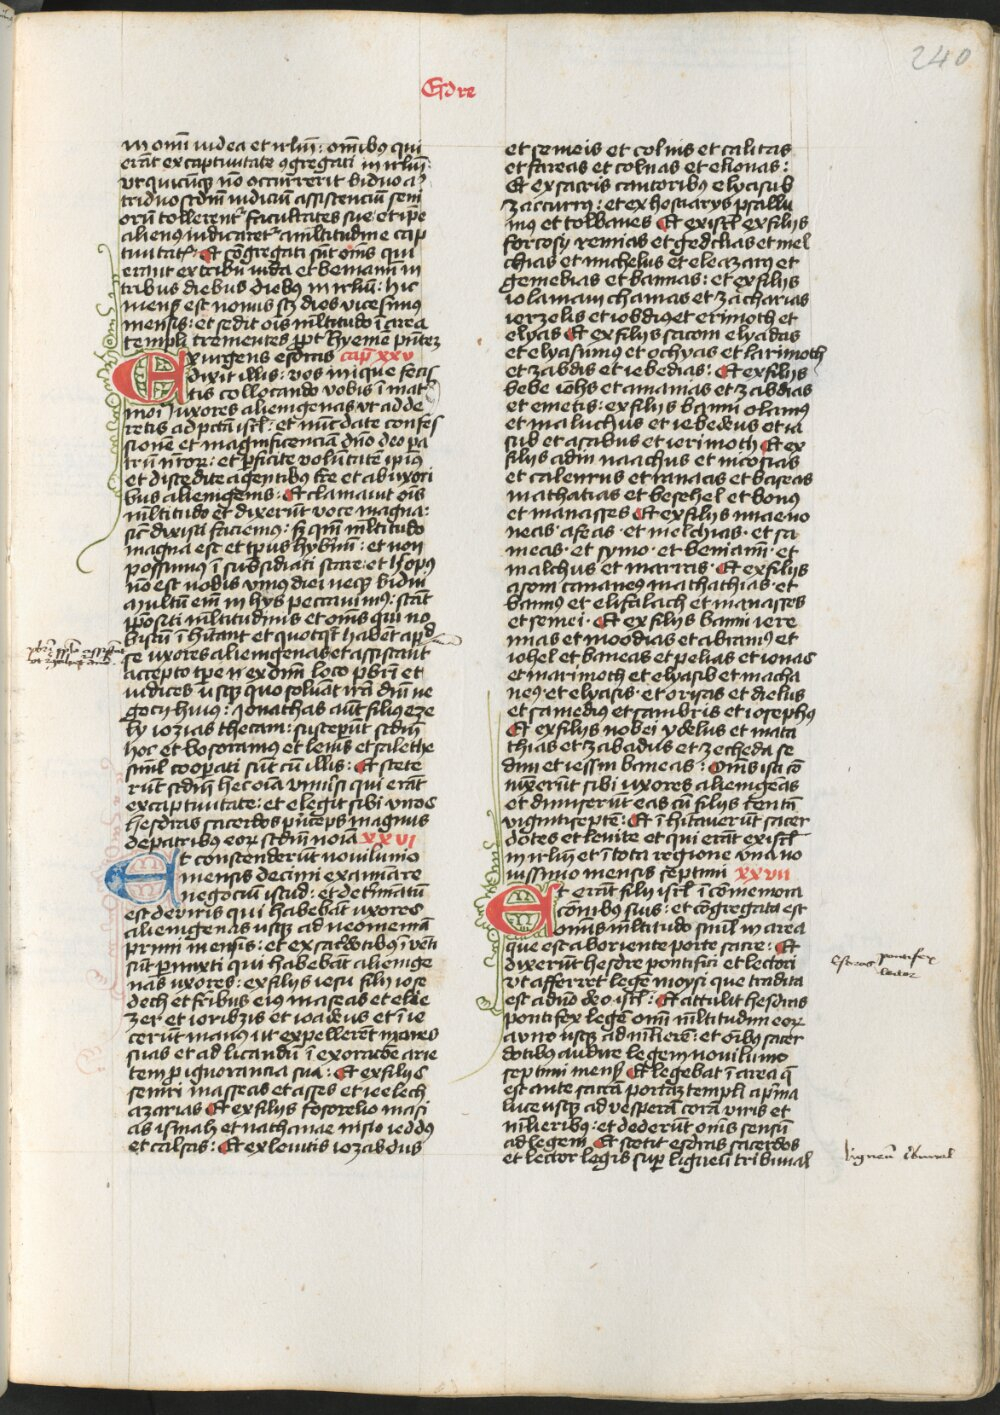 240
Esdre
in omī iudea et irlm̄ : omībꝰ qui
erāt ex captiuitate ꝯgregati in irlm̄ :
vt quicūqꝫ nō occurrerit biduo aut
triduo scdm̄ iudiciū assistenciū seni
orū tollerentᷣ facultates sue et ipē
alienꝰ iudicaretᷣ a mltitudine cap
tiuitatꝭ . Et cōgregati sūt om̄s qui
erant ex tribu iuda et beniamī in
tribus diebus diebꝰ in irlm̄ : hic
mensꝭ est nonus scꝫ dies vicesimus
mensis : et sedit oīs mltitudo ī area
templi trementes ꝓpt hyeme pn̄tez
Exurgens esdras cap̄ xxv
dixit illis : vos inique fecis
tis collocando vobis ī mat
moī vxores alienigenas vt adde
retis ad pctā isrl̄ : et nūc date confes
sionē et magnificenciā dn̄o deo pa
trū nr̄oꝝ : et ꝑficite volūtatē ipius
et discedite a gentibus tr̄e et ab vxori
bus alienigenis . Et clamauit oīs
mltitudo et dixerūt voce magna :
sic̄ dixisti faciemus : sꝫ qm̄ mltitudo
magna est et tp̄us hybn̄m : et non
possumus ī subsidiati stare : et h opꝰ
nō est nobis vnius diei neqꝫ bidui
multū em̄ in hys peccauimꝰ : stāt
ꝓpositi mltitudinis et om̄s qui no
biscū īhītant et quotqt̄ habēt apd̄
se vxores alienigenas et assistant
accepto tpe n ex om̄i loco pbr̄i et
iudices usqꝫ quo soluāt irā dn̄i ne
gocij huius : Jonathas aūt filiꝰ eze
ly iozias thecam : susceperūt scdm̄
hoc et bosoramus et leuis et salethe
siml̄ coopati sūt cū illis : Et stete
rūt scdm̄ hec oīa vniuˀsi qui erāt
ex captiuitate : et elegit sibi viros
hesdras sacerdos pn̄ceps magnus
de patribus eoꝝ scdm̄ noīa xxvi
Et conscenderūt nouilunio
mensis decimi examinare
negociū istud : et detˀmīatū
est de viris qui habebāt vxores
alienigenas usqꝫ ad neomeniā
primi mensis : et ex sacdotibꝰ ī vēti
sūt pˀmixti qui habebāt alienige
nas vxores : ex filijs iesu filij iose
dech et fr̄ibus eiꝰ maseas et elie
zer et ioribzis et ioadeus et ī ie
cerūt manꝰ ut expellerēt vxores
suas et ad licandū ī exoracōe arie
tem ꝓ ignorancia sua : Et ex filijs
semri masseas et asses et ieelech
azarias Et ex filijs fosorelio masi
as ismah et nathanae iusio ieddus
et calsas : Et ex leuitis iozabdus
et semeis et colnis et calitas
et fareas et colnas et elionas :
Et ex sacris cantoribꝰ elyasub
zaccurry : et ex hostiarys psallu
mꝰ et tolbanes Et ex isrl̄ ex filijs
forcosy remias et gedchas et mel
chias et michelus et eleazarꝰ et
gemebias et bannas : et ex filijs
iolamani chamas et zacharias
iorzelis et iobdiꝰ et erimoth et
elyas Et ex filijs sacom elyadas
et elyasumꝰ et ochyas et larimoth
et zabdis et iebedias : Et ex filijs
bebe iohs et amanias et zabdias
et emetis : ex filijs bannj olamꝰ
et maluchus et iebedeus et ia
sub et azabus et ierimoth Et ex
filijs adin naachus et moosias
et calenrus et ranaas et baseas
mathatias et besehel et bonꝰ
et manasses Et ex filijs nuae no
neas . aseas . et melchias . et sa
meas . et symo . et beniami . et
malchus et marras . Et ex filijs
asom cananeꝰ mathathias . et
bannꝰ et elifalach et manasses
et semei . Et ex filijs banni iere
mias et moodias et abramꝰ et
iohel et baneas et pelias et ionas
et marimoth et elyasib et macha
neꝰ et elyasis . et oryas et dielus
et samediꝰ et sambris et iosephꝰ
Et ex filijs nobei ydelus et mata
thias et zabadus et zecheda se
dmi et iessm baneas : Om̄s isti cō
iūxerūt sibi vxores alienigēas
et dimiserūt eas cū filijs tentā
viginti septē : Et īhītauerūt sacer
dotes et leuite et qui erāt ex isrl̄
in irlm̄ et ī tota regione vna no
uissimo mensis septimi xxvii
Et erāt filij isrl̄ ī cōmemora
cōnibꝰ suis : et cōgregata est
omīs mltitudo siml̄ in area
que est ab oriente porte sacre : Et
dixerūt hesdre pontifici et lectori
vt afferret legē moysi que tradita
est a dn̄o deo isrl̄ : Et attulit hesdras
pontifex legē omī mltitudini eoꝝ
a viro usqꝫ ad mlierē : et oībꝰ sacer
dotibꝰ audire legem nouilunio
septimi mensꝭ Et legebat ī area q̄
est ante sacrā portāz templi a pˀma
luce usqꝫ ad vesperā corā viris et
mlieribꝰ : et dederūt om̄s sensū
ad legem Et stetit esdras sacerdos
et lector legis suꝑ ligneū tribunal
Esdras pontifex
lector
ligneū tˀbunal